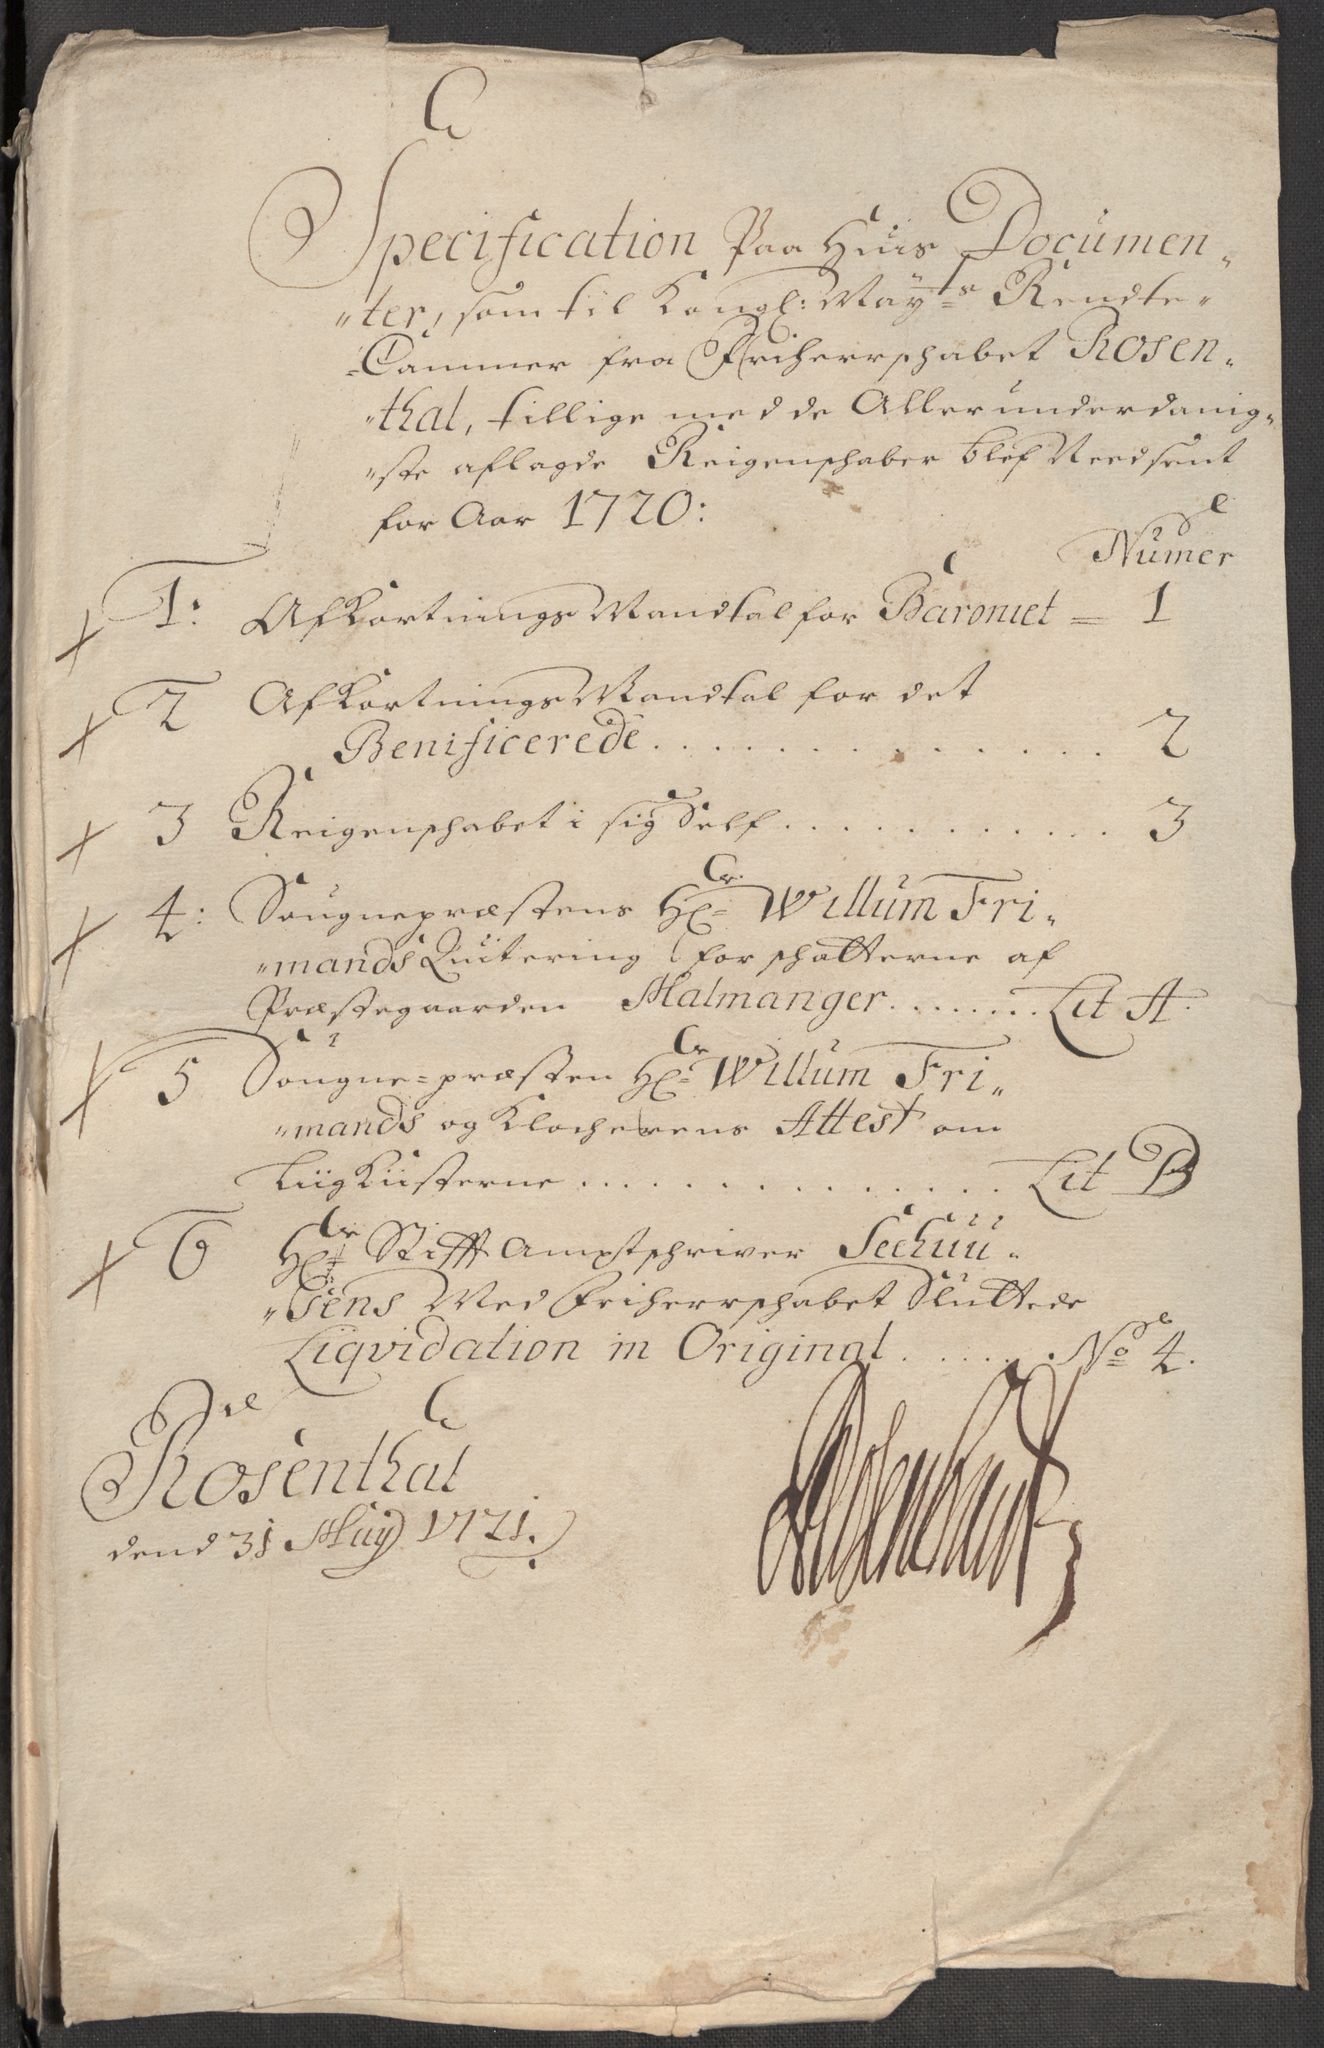 Specification Paa Huis Documen„
„ter, som til Kongl: May:ts Rendte„
Cammer fra Friherrschabet Rosen„
„thal, tillige med de Allerunderdanig„
„ste aflagde Reigenschaber blef Needsent
for Aar 1720:
Numer
1: Afkortnings Mandtal for Baroniet = 1
2 Afkortnings Mandtal for det
Benificerede . . . . . . . . . . . . . . 2
3 Reigenschabet i sig Self . . . . . . . . . . . 3
4: Sougnepræstens Hr: Willum Fri„
„mands Quitering for schatterne af
Præstegaarden Malmanger . . . . . . . Lit A.
5 Sougne=præsten Hr: Willum Fri„
„mands og Klocherens Attest om
Liig Kiisterne . . . . . . . . . . . . . . Lit B
6 Hr: Stifft Amptschriver Seehuu„
„sens Med Friherrschabet Sluttede
Liqvidation in Original . . . . . . No 4.
Rosenthal
dend 31 May 1721.